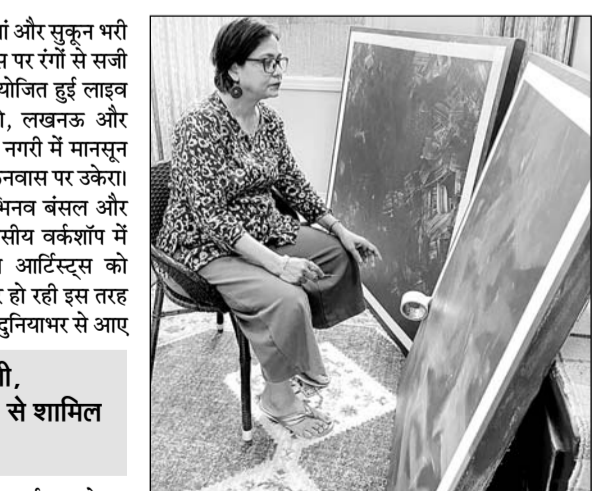 और सुकून भरी
पर रंगों से सजी
हुई लाइव
लखनऊ और
नगरी में मानसून
पर उकेरा।
बंसल और
वर्कशॉप में
आर्टिस्ट्स को
हो रही इस तरह
दुनियाभर से आए
से शामिल